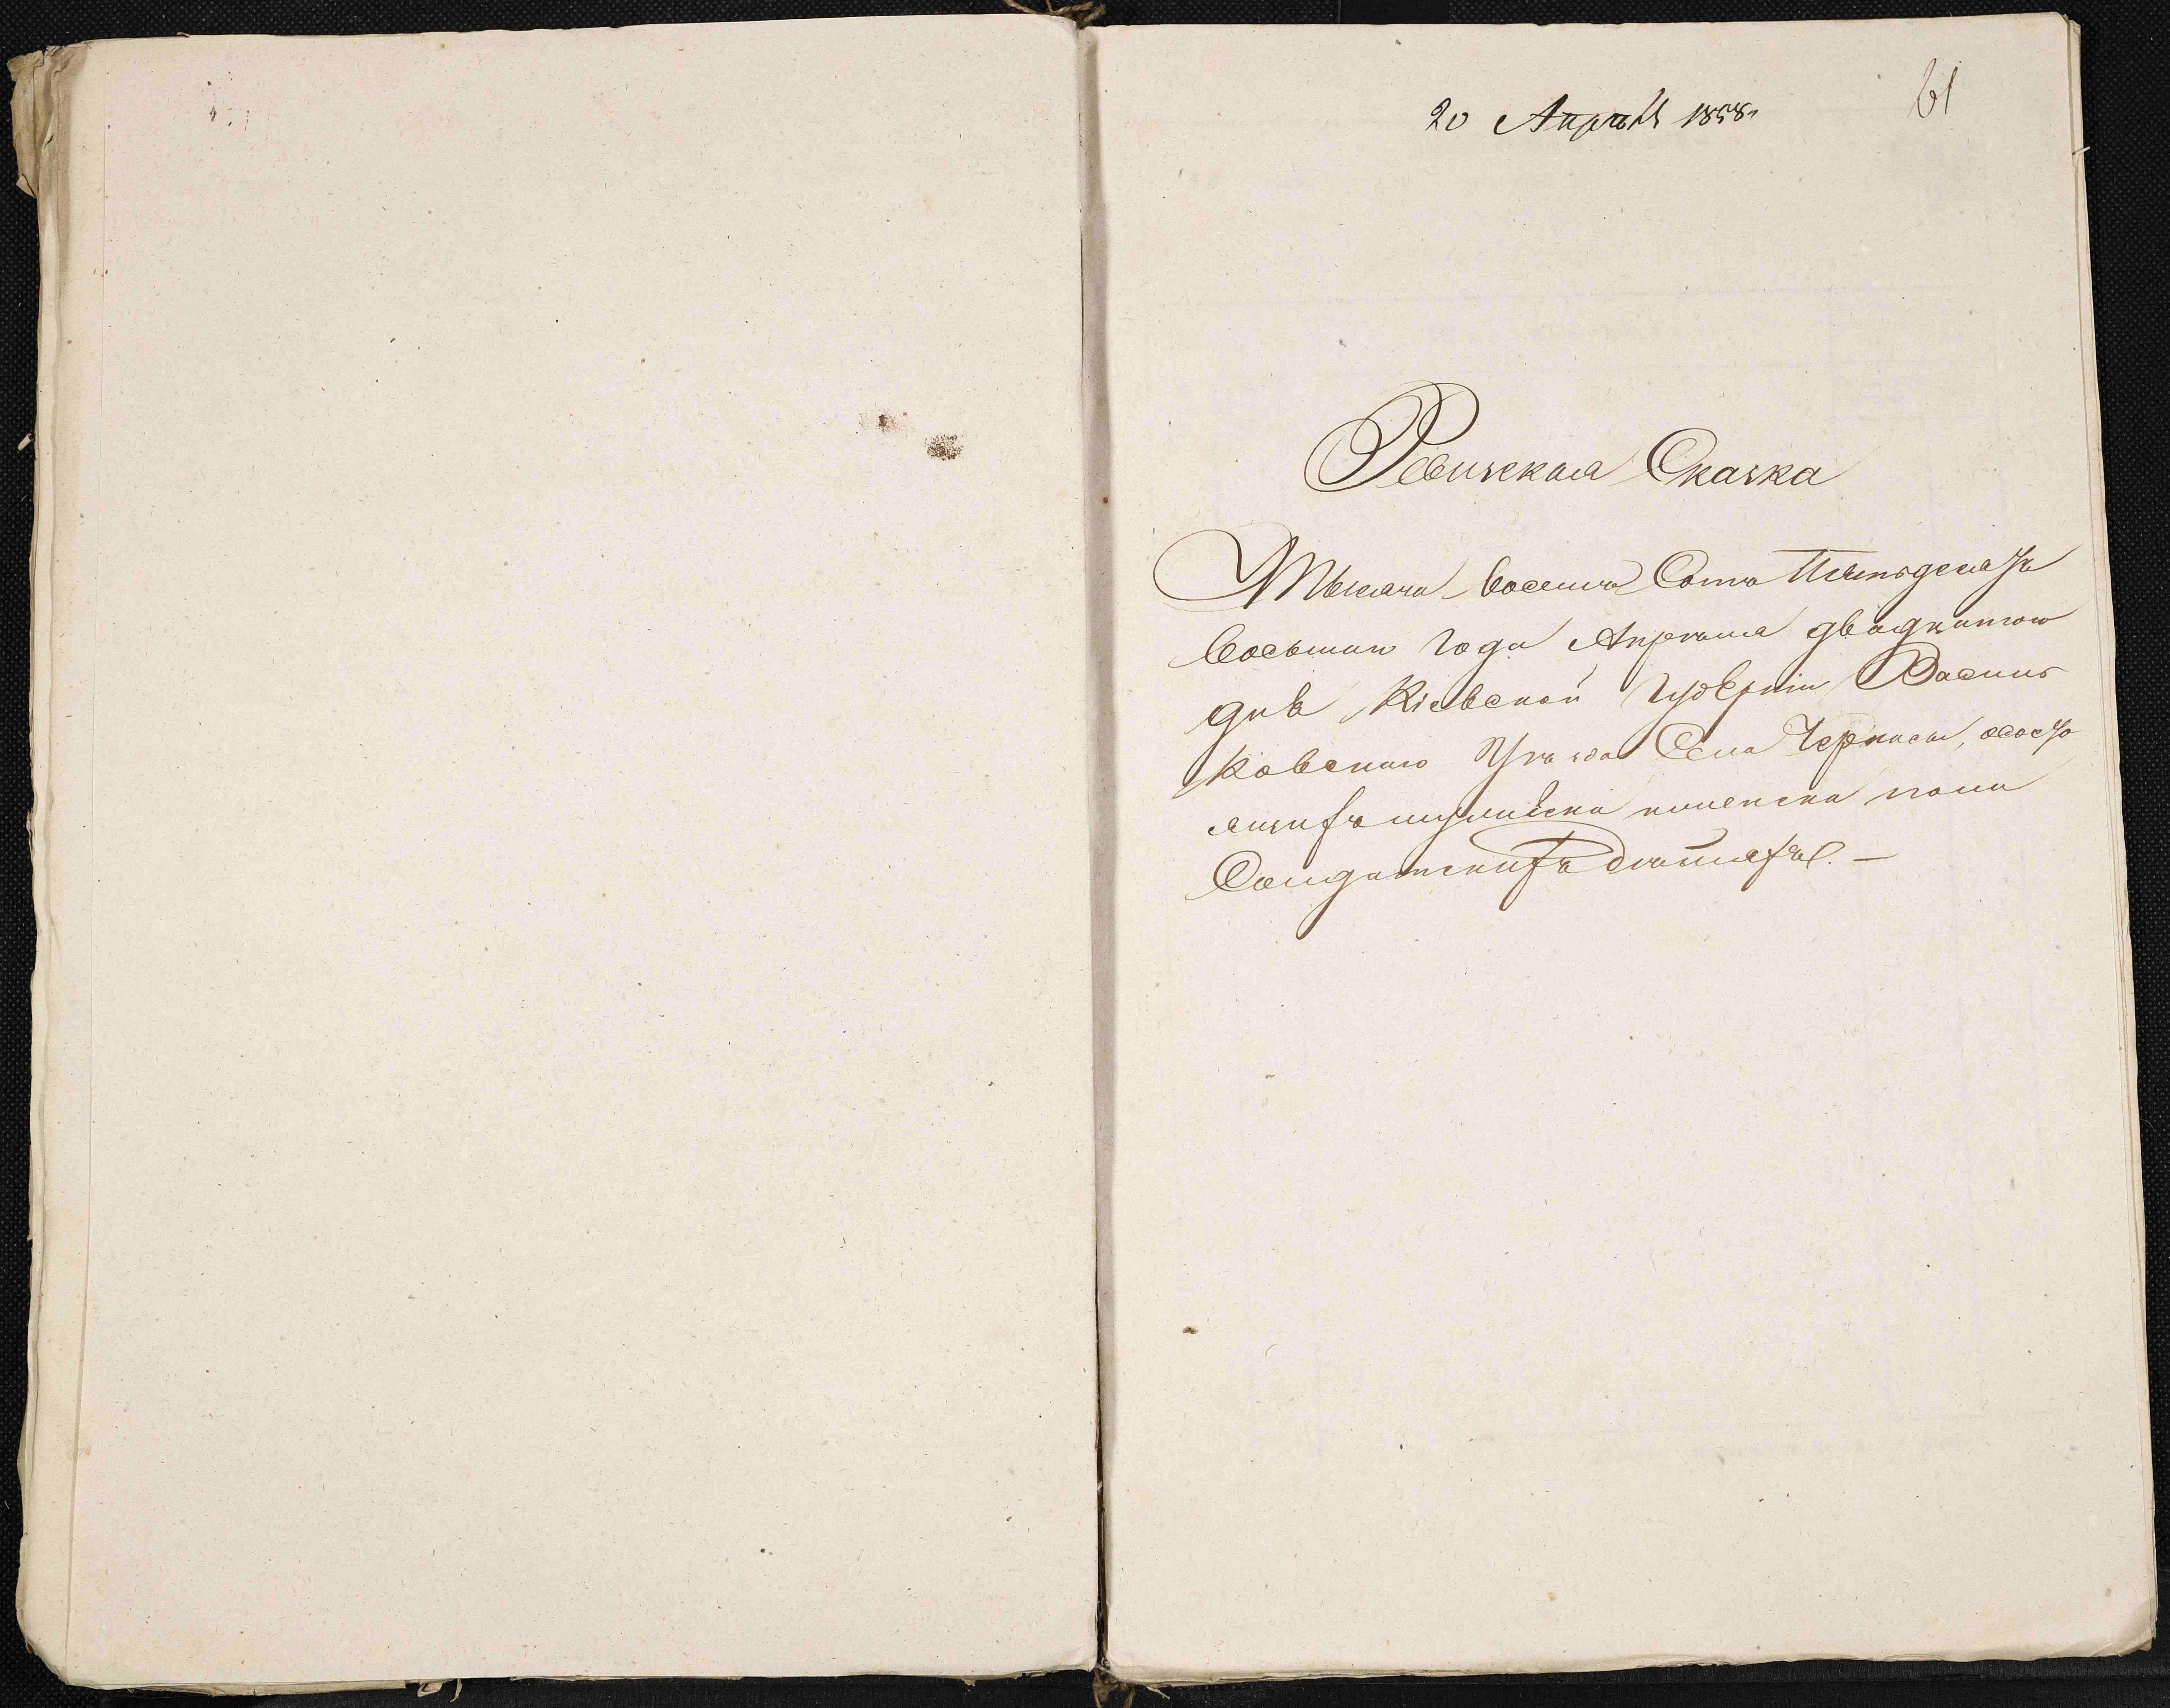 20 Апрѣля 1858
61
Ревизская Сказка
Тысяча восемь Сотъ Пятьдесятъ
восьмаго года Апрѣля двадцатого
дня Кіевской Губерніи Василь
ковскаго Уѣзда Села Черкасъ, о
женска пола
Солдатскихъ дѣтяхъ. —